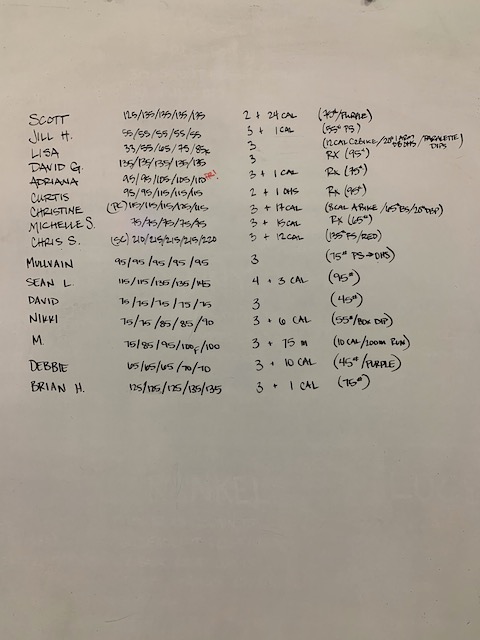 SCOTT 125/135/135/135/135 2 + 24 CAL (70#/PURPLE)
JILL H. 55/55/55/55/55 3 + 1 CAL (55# PS)
LISA 33/55/65/75/85 3 (12 CAL C2BIKE / DHS / PARALETTE DIPS)
DAVID G. 135/135/135/135/135 3 RX (95#)
ADRIANA 95/95/105/105/110 PR! 3 + 1 CAL RX (75#)
CURTIS 95/95/115/115/115 2 + 1 DHS RX (95#)
CHRISTINE (PC) 115/115/115/125/115 3 + 17 CAL (8CAL A BIKE / 65# PS/20# DSP)
MICHELLE S. 75/75/75/75/75 3 + 15 CAL RX (65#)
CHRIS S. (SC) 210/215/215/215/220 3 + 12 CAL (135# FS/RED)
MULLVAIN 95/95/95/95/95 3 (75# PS → DHS)
SEAN L. 115/115/135/135/145 4 + 3 CAL (95#)
DAVID 75/75/75/75/75 3 (45#)
NIKKI 75/75/85/85/90 3 + 6 CAL (55#/BOX DIP)
M. 75/85/95/100F/100 3 + 75 M (10 CAL/200M RUN)
DEBBIE 65/65/65/70/70 3 + 10 CAL (45#/PURPLE)
BRIAN H. 125/125/125/135/135 3 + 1 CAL (75#)